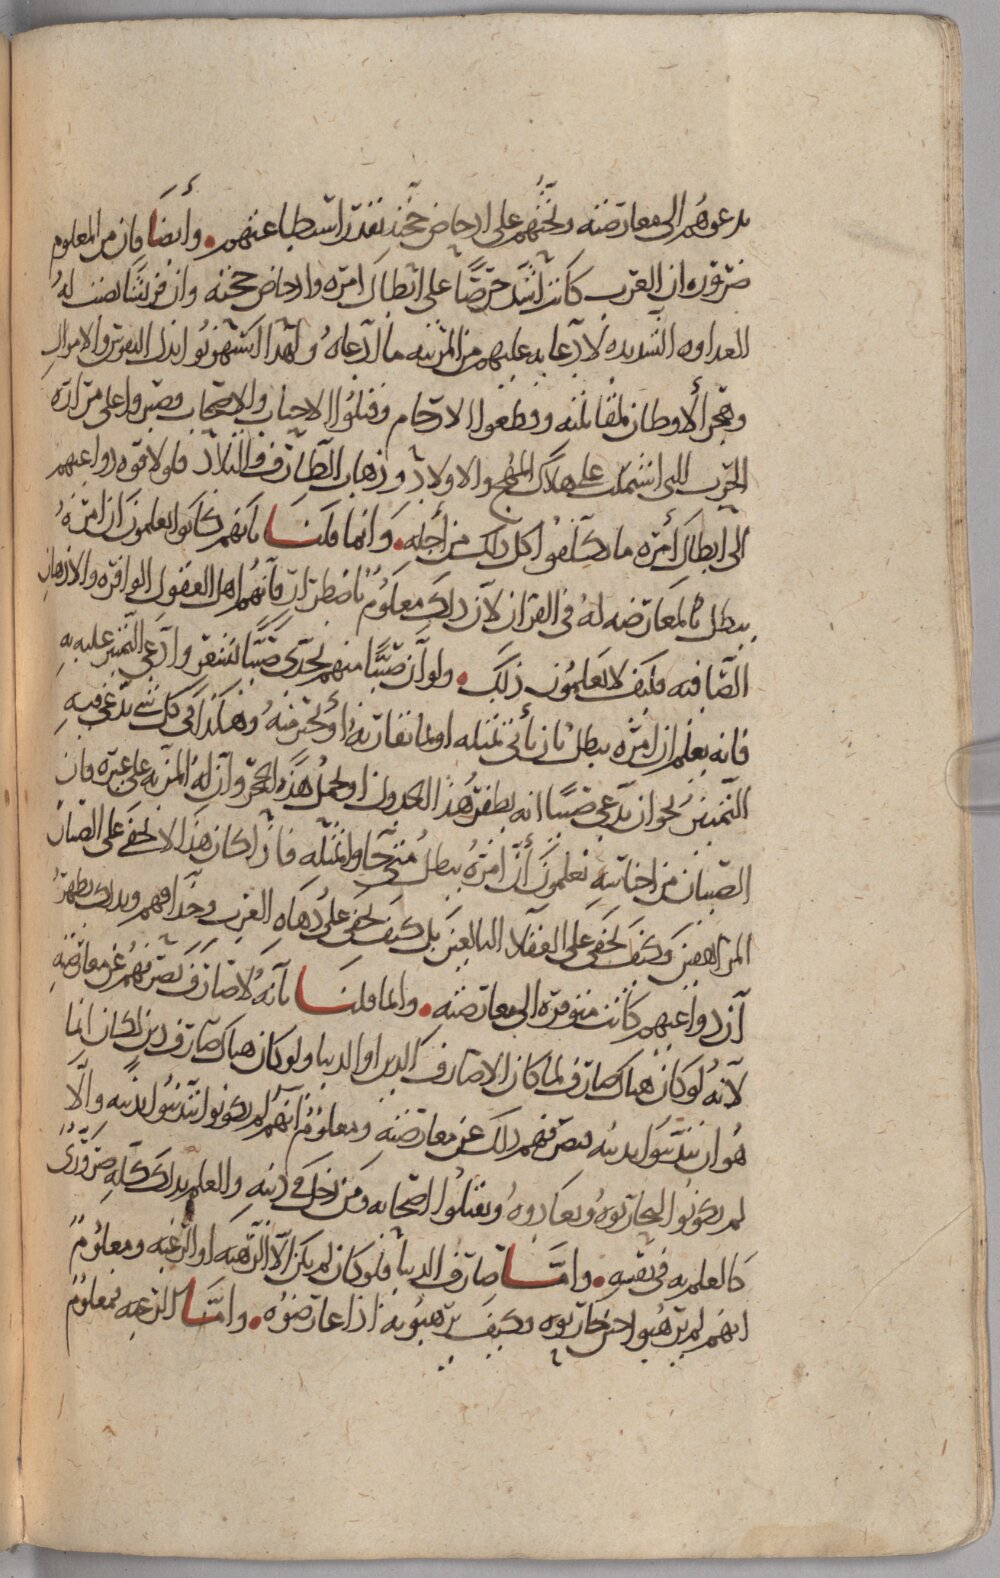 يدعوهم الى معارضته ويحثهم على ادحاض حجته بقدر استطاعتهم • وأيضًا فان من المعلوم
ضرورة ان العرب كانت اشد حرصًا على ابطال امره وادحاض حجته وان قريشا نصبت له
العداوه الشديده لادعايه عليهم من المرتبه ما ادعاه ولهذا استهونوا بذل النفوس والاموال
وهجر الأوطان لمقابلته وقطعوا الارحام وقتلوا الاحباب والاصحاب وصبروا على مرارة
الحرب التي اشتملت على هلاك المهج والاولاد وذهاب الطارف والتلاد فلولا قوه دواعيهم
الى ابطال أمره ما تكلفوا كل ذلك من أجله • وانما قلنا بانهم كانوا يعلمون ان امره
يبطل بالمعارضه له في القران لأن ذلك معلوم باضطرار فانهم اهل العقول الوافره والاذهان
الصافيه فكيف لا يعلمون ذلك • ولو أن صبيًا منهم تحدى صبيًا بشعر وادعى التميز عليه به
فانه يعلم ان امره يبطل بان يأتي بمثله او بما يقاربه او يحترفه وهكذا في كل شي يدعي فيه
التمييز نحو ان يدعي صبيًا انه يطفر هذا الجدول او يحمل هذا الحجر وان له المزيه على غيره فان
الصبيان من اجانبه يعلمون أن امره يبطل متى جاوا بمثله فاذا كان هذا لا يخفى على الصبيان
المراهقين وكيف يخفى على العقلا البالغين بل كيف يخفى على دهاه العرب وحذاقهم وبذلك يظهر
أن دواعيهم كانت متوفره الى معارضته • وانما قلنا بأنه لا صارف يصرفهم عن معارضته
لأنه لو كان هناك صارف لما كان الا صارف الدين او الدنيا ولو كان هناك صارف دين لكان انما
هو ان يتدينوا بدينه فيصرفهم ذلك عن معارضته ومعلوم أنهم لم يكونوا يتدينوا بدينه والا
لم يكونوا ليحاربوه ويعادوه ويقتلوا اصحابه ومن دخل في دينه والعلم بذلك كله ضروري
كالعلم به في نفسه • وامّا صارف الدنيا فلو كان لم يكن الا الرهبه او الرغبه ومعلوم
انهم لم يرهبوا حين حاربوه فكيف يرهبونه اذا عارضوه • وامّا الرغبه فمعلوم